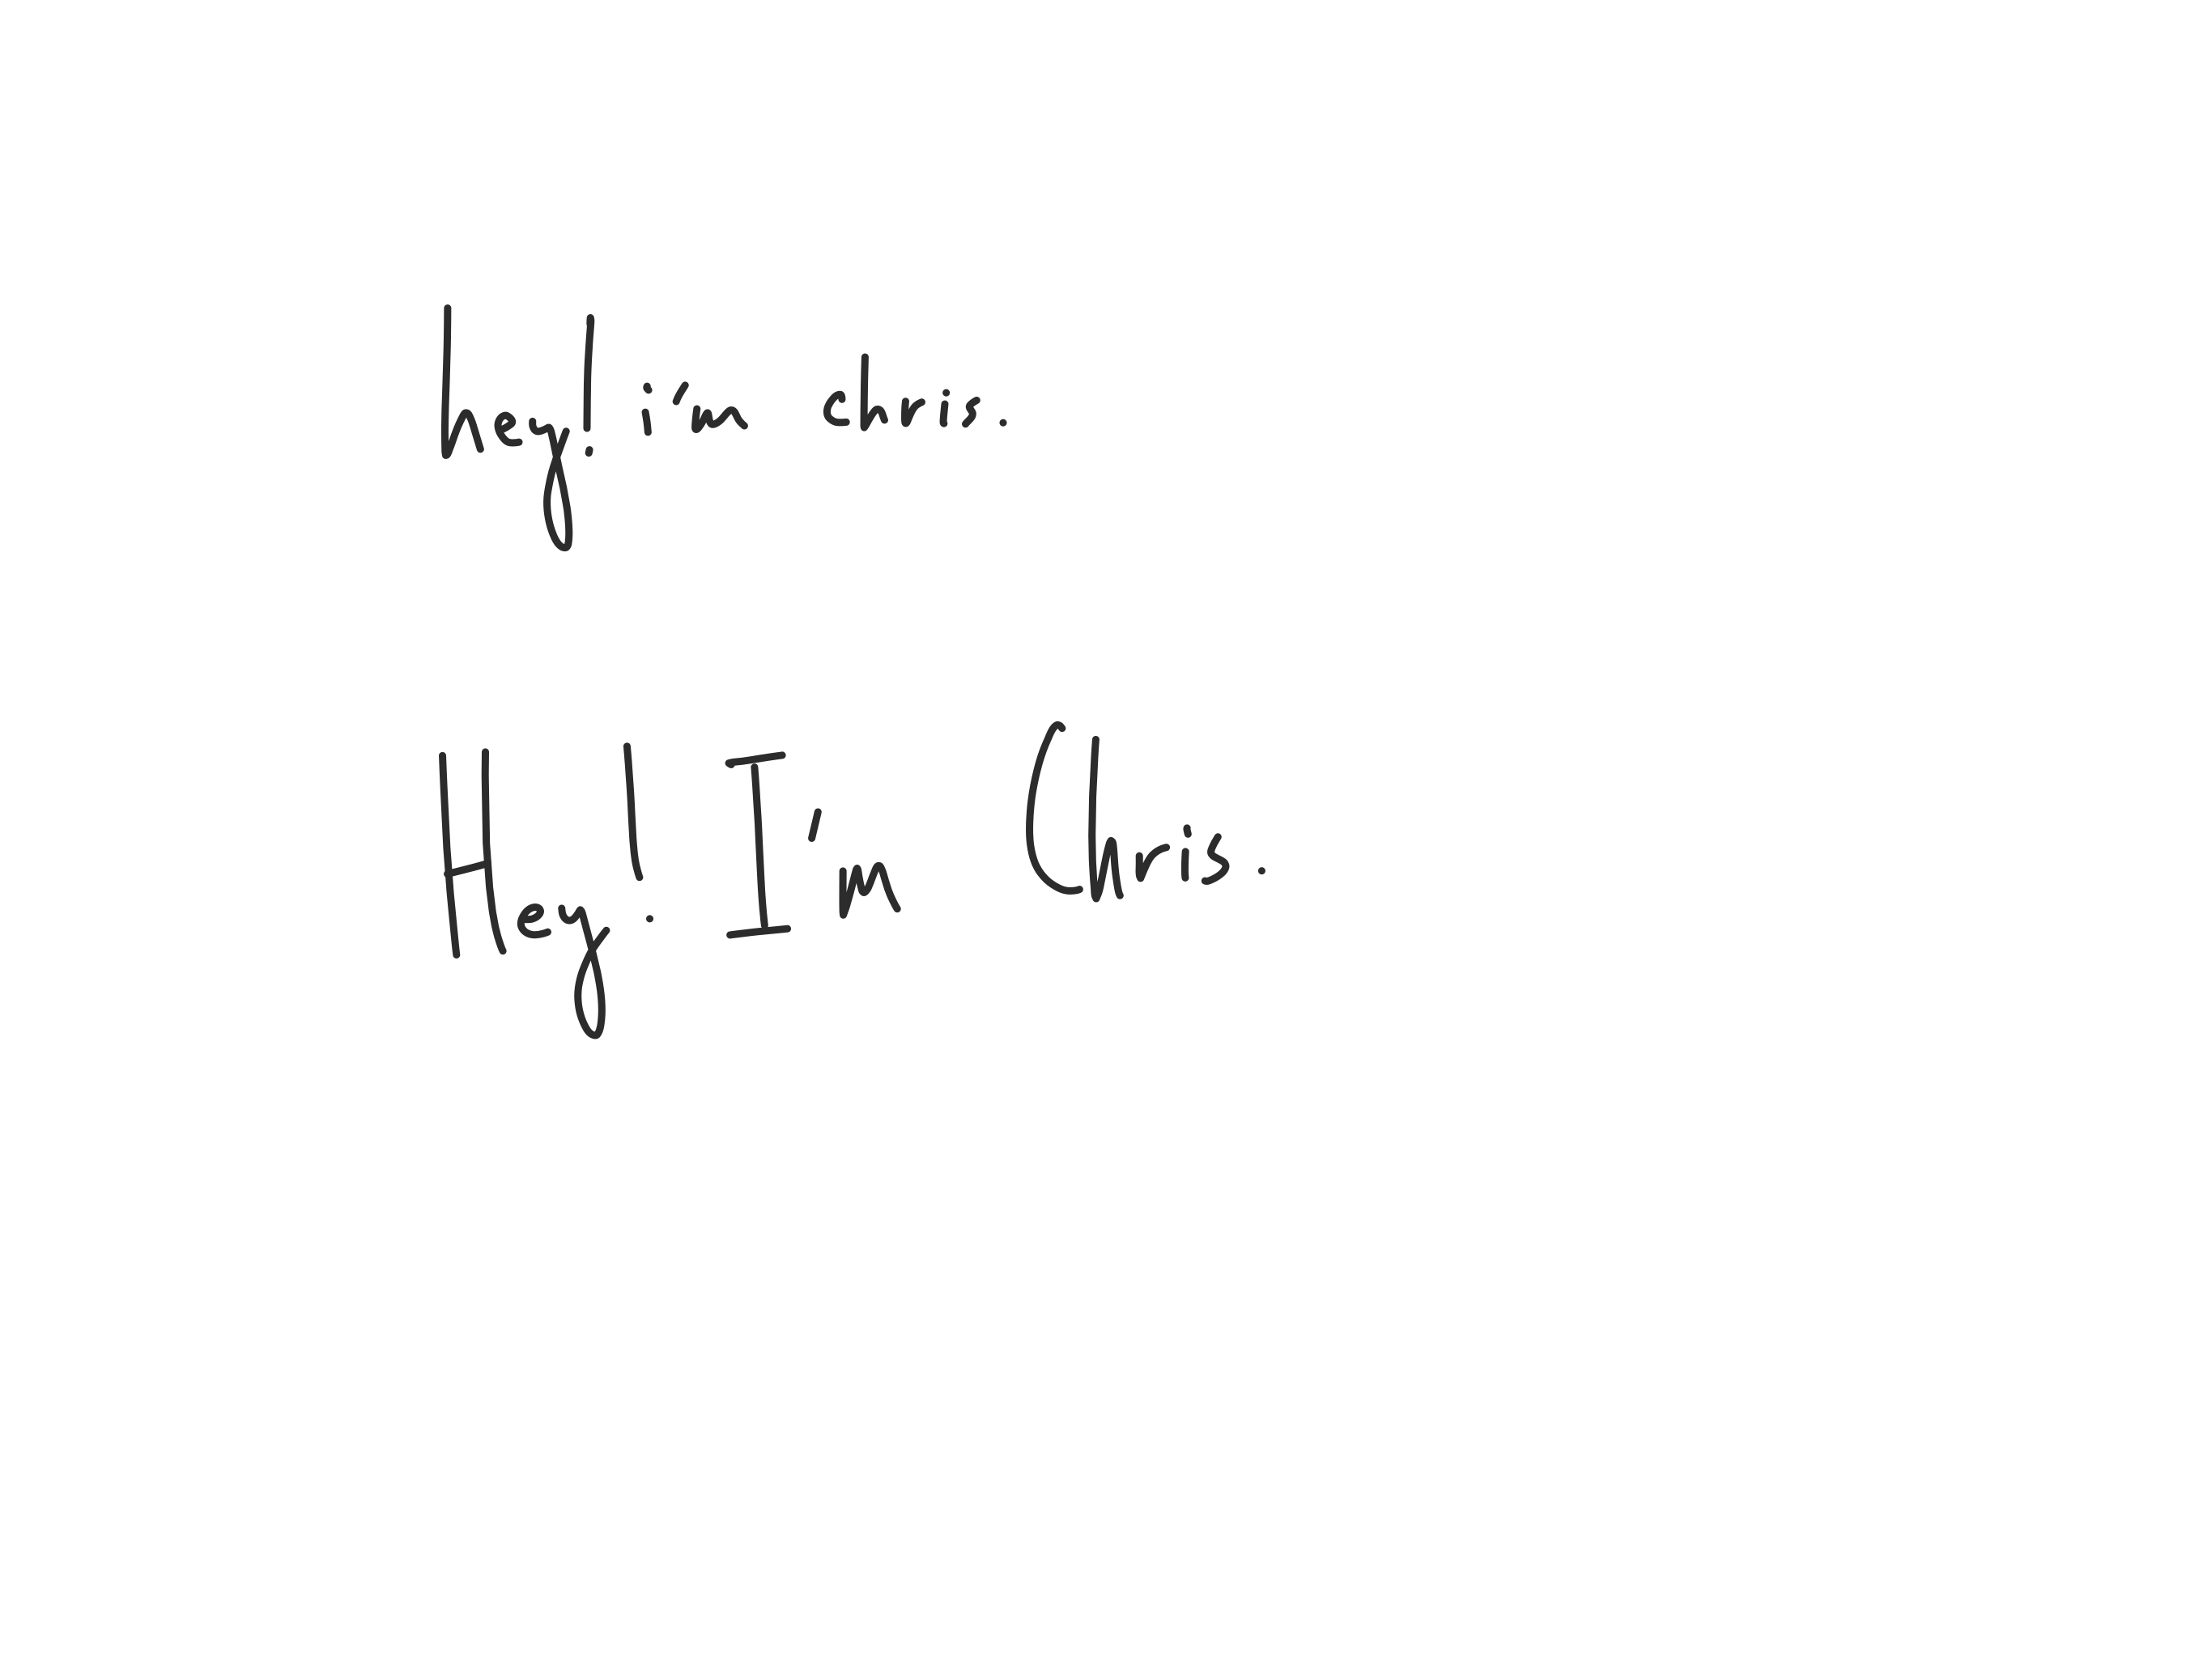 hey! i'm chris.
Hey! I'm Chris.